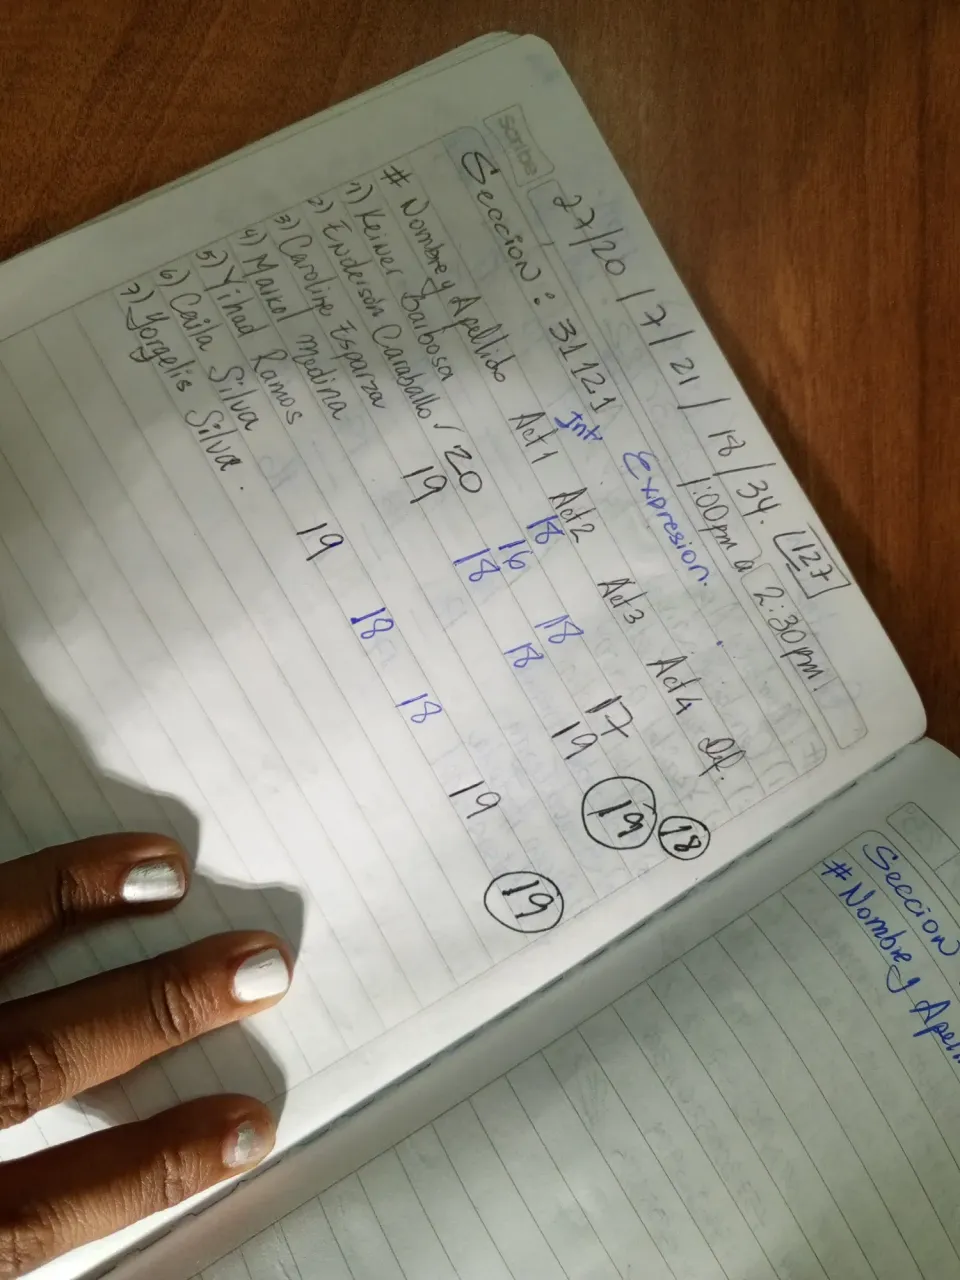 27/20 / 7/21/ 18/34. (127)
1:00pm a 2:30pm!
Sección: 3112.1 Expresion.
Int
# Nombre y Apellido Act1 Act2 Act3 Act4 Def.
1) Keiner Barbosa 18
2) Enderson Caraballo / 20 16 18 17 18
3) Caroline Esparza 19 18 18 19 19
4) Maikol Medina
5) Yihad Ramos
6) Caila Silva 19 18 18 19 19
7) Yorgelis Silva.
scribe
Seccion
# Nombre y